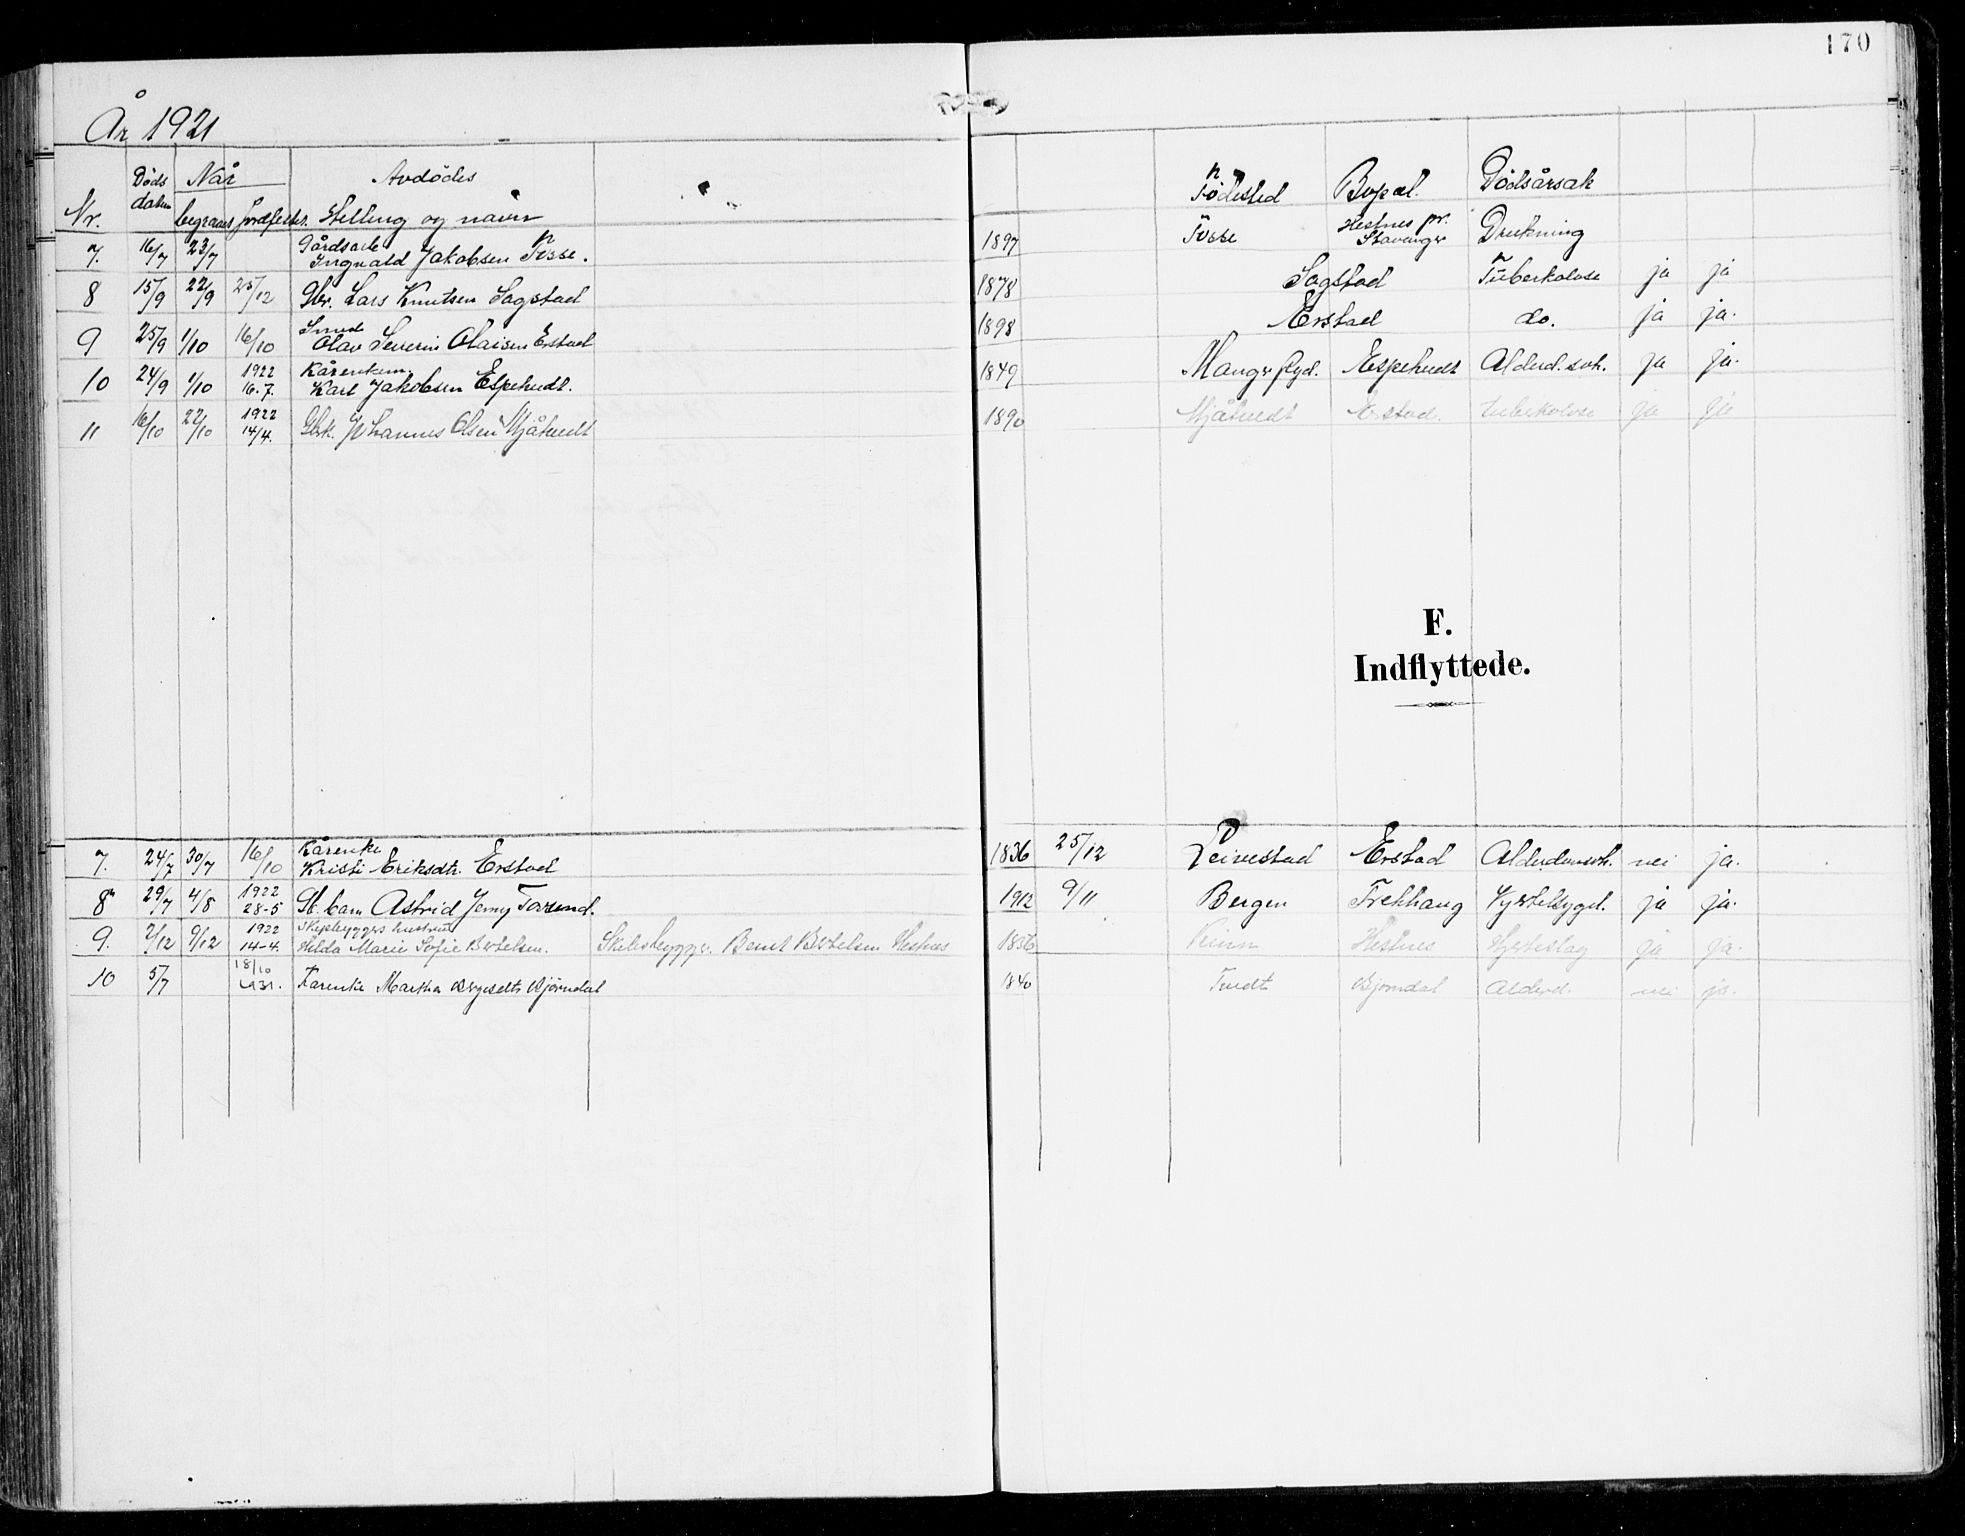 170
År 1921
Nr. Døds datum Når begravet jordfestet. Avdødes Stilling og navn Fødested Bopæl. Dødsårsak
7. 16/7 23/7 Gårdsarb. Ingvald Jakobsen Fosse. 1897 Fosse Hestnes pr. Stavanger Drukning
8 15/9 22/9 25/12 Gbr. Lars Knutsen Sagstad 1878 Sagstad Tuberkolose ja ja
9 25/9 1/10 16/10 Olav Severin Olaisen Erstad 1898 Erstad do. ja ja.
10 24/9 1/10 1922 16.7. Kårenkem. Karl Jakobsen Espetvedt. 1849 Manger Espetvedt Alderd.svk. ja ja.
11 16/10 22/10 1922 14/4. Gbrk. Johannes Olsen Mjåtvedt 1890 Mjåtvedt Erstad tuberkolose ja ja
F.
Indflyttede.
7. 24/7 30/7 16/10 Kårenke Kristi Eriksdtr. Erstad 1836 25/12 Leivestad Erstad Alderdomsvk. nei ja.
8 29/7 4/8 1922 28-5 Sk.barn Astrid Jenny Torsund. 1912 9/11 Bergen Trekhaug Hjertesygd. ja ja.
9. 2/12 9/12 1922 14-4. Skibsbyggers hustru Hilda Marie Sofie Bertelsen. Skibsbygger Bernt Bertelsen Hestnes 1856 Kinn Hestnes Hjerteslag ja ja.
10 5/7 18/10 1931. Karenke Martha Brynjeldtr Bjørndal 1840 Tvedt Bjørndal Alderd. nei ja.